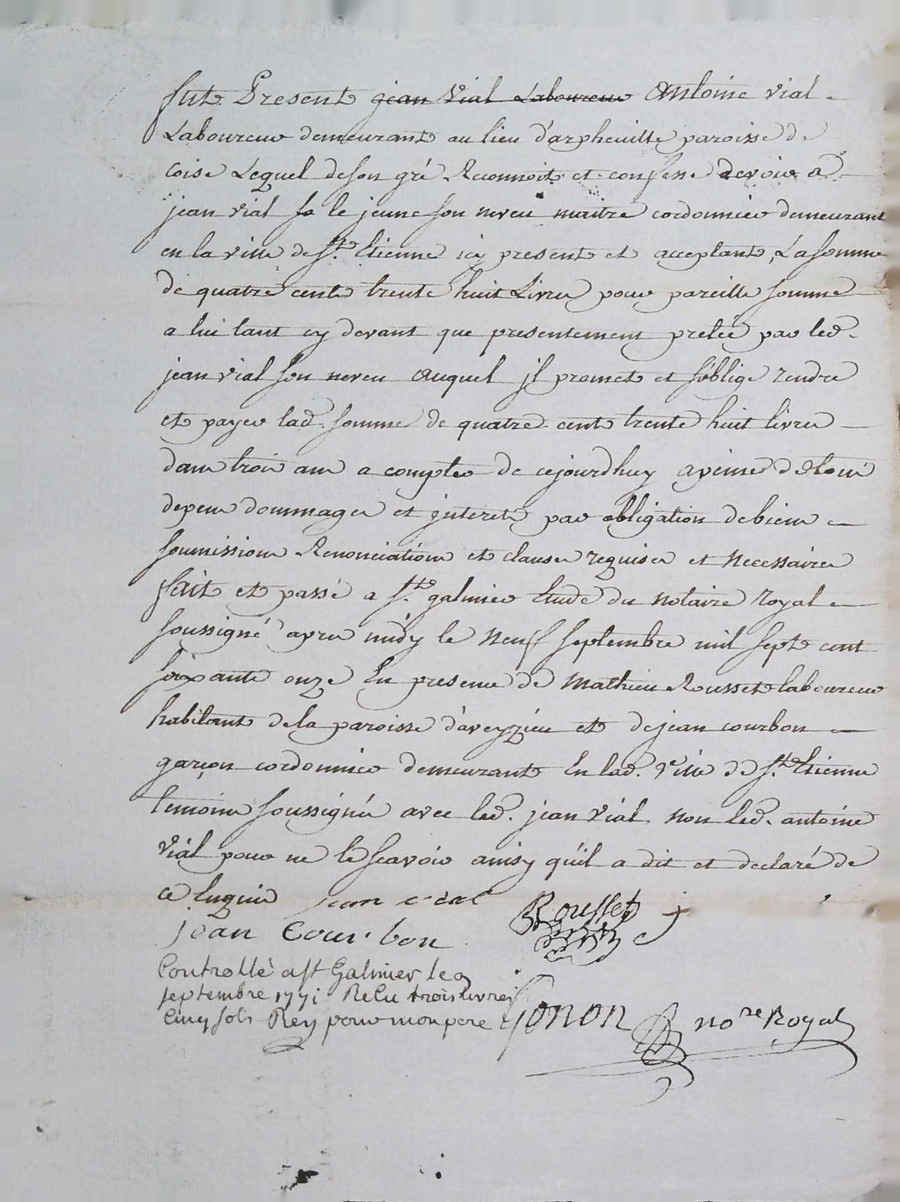 fut Present jean vial Laboureur Antoine vial
Laboureur demeurant au lieu d'arpheuille paroisse de
coise Lequel de son gré Reconnoit et confesse devoir a
jean vial le jeune son neveu maitre cordonnier demeurant
en la ville de St. Etienne icy present et acceptant, La somme
de quatre cent trente huit Livres pour pareille somme
a lui tant cy devant que presentement pretée par led.
jean vial son neveu auquel jl promet et s'oblige rendre
et payer lad. somme de quatre cent trente huit livres
dans trois ans a compter de cejourdhuy a peine de tous
depens dommages et jnterets par obligation de biens
soumissions Renonciations et clauses requises et necessaires
fait et passé a St. galmier Etude du notaire Royal
soussigné apres midy le neuf septembre mil sept cent
soixante onze En presence de Mathieu Rousset laboureur
habitant de la paroisse d'aveyzieu et de jean courbon
garçon cordonnier demeurant En lad. ville de St. Etienne
temoins soussignés avec led. jean vial non led. antoine
vial pour ne le scavoir ainsy qu'il a dit et declaré de
ce Enquis jean vial
Rousset
jean Courbon
Controllé a st Galmier le 9
septembre 1771 Recu trois livres
cinq sols Rey pour mon pere
Gonon nore Royal